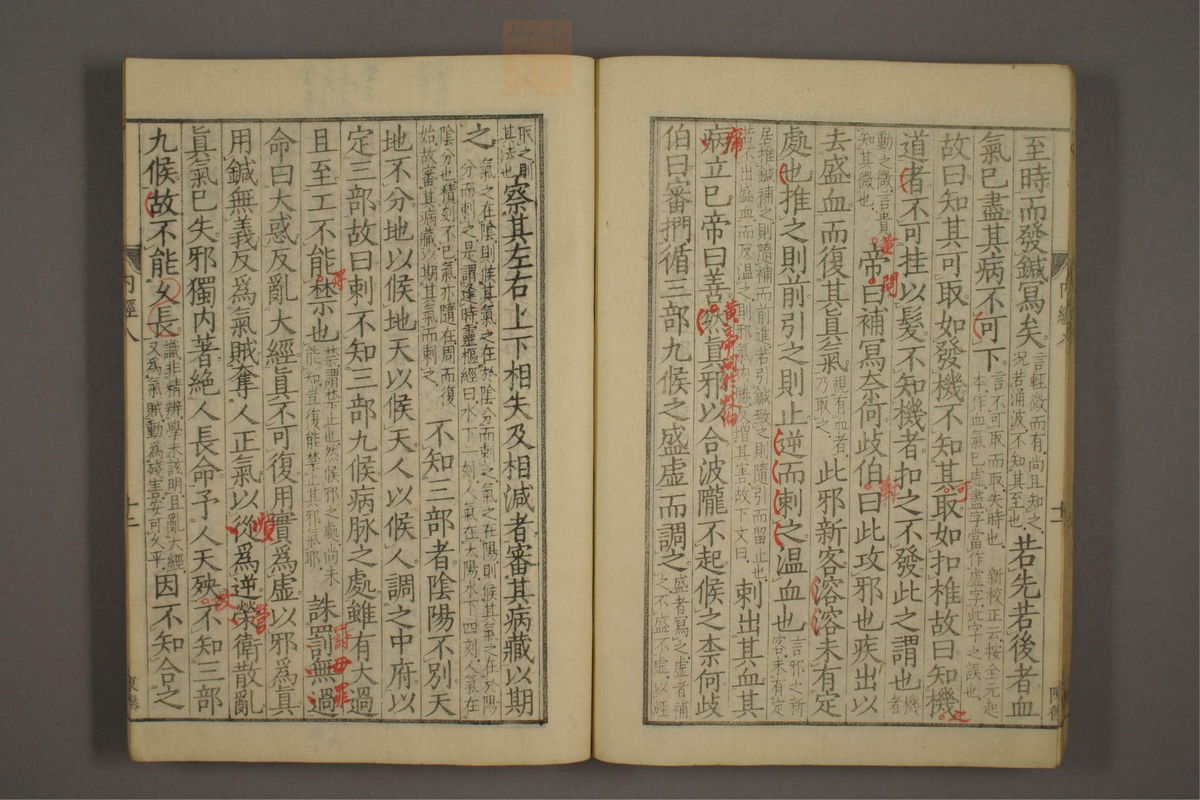 至時而發鍼寫矣言輕微而有尚且知之况若涌波不知其至也若先若後者血
氣已盡其病不可下言不可取而取失時也新校正云按全元起本作血氣已虛盡字當作虛字此字之誤也
故曰知其可取如發機不知其取如扣椎故曰知機
道者不可挂以髮不知機者扣之不發此之謂也機者
動之微言貴知其微也帝曰補寫奈何歧伯曰此攻邪也疾出以
去盛血而復其眞氣視有血者乃取之此邪新客溶溶未有定
處也推之則前引之則止逆而刺之温血也言邪之所客未有定
居推鍼補之則隨補而前進若引鍼致之則隨引而留止也若不出盛血而反温之則邪氣内勝反增其害故下文曰刺出其血其
病立已帝曰善然眞邪以合波隴不起候之柰何歧
伯曰審捫循三部九候之盛虛而調之盛者寫之虛者補之不盛不虛以經
取之則其法也察其左右上下相失及相減者審其病藏以期
之氣之在陰則候其氣之在於陰分而刺之氣之在陽則候其氣之在於陽分而刺之是謂逢時靈樞經曰水下一刻人氣在太陽水下四刻人氣在
陰分也積刻不已氣亦隨在周而復始故審其病藏以期其氣而刺之不知三部者陰陽不別天
地不分地以候地天以候天人以候人調之中府以
定三部故曰刺不知三部九候病脉之處雖有大過
且至工不能禁也禁謂禁止也然候邪之處尚未能知豈復能禁止其邪氣耶誅罰無過
命曰大惑反亂大經眞不可復用實爲虛以邪爲眞
用鍼無義反爲氣賊奪人正氣以從爲逆榮衛散亂
眞氣已失邪獨内著絕人長命予人天殃不知三部
九候故不能久長識非精辨學未該明且亂大經又爲氣賊動爲殘害安可久乎因不知合之
内經八
十二
痛
黃
問
對
可
之
黃帝問於岐伯
得
罰毋罪
順
營